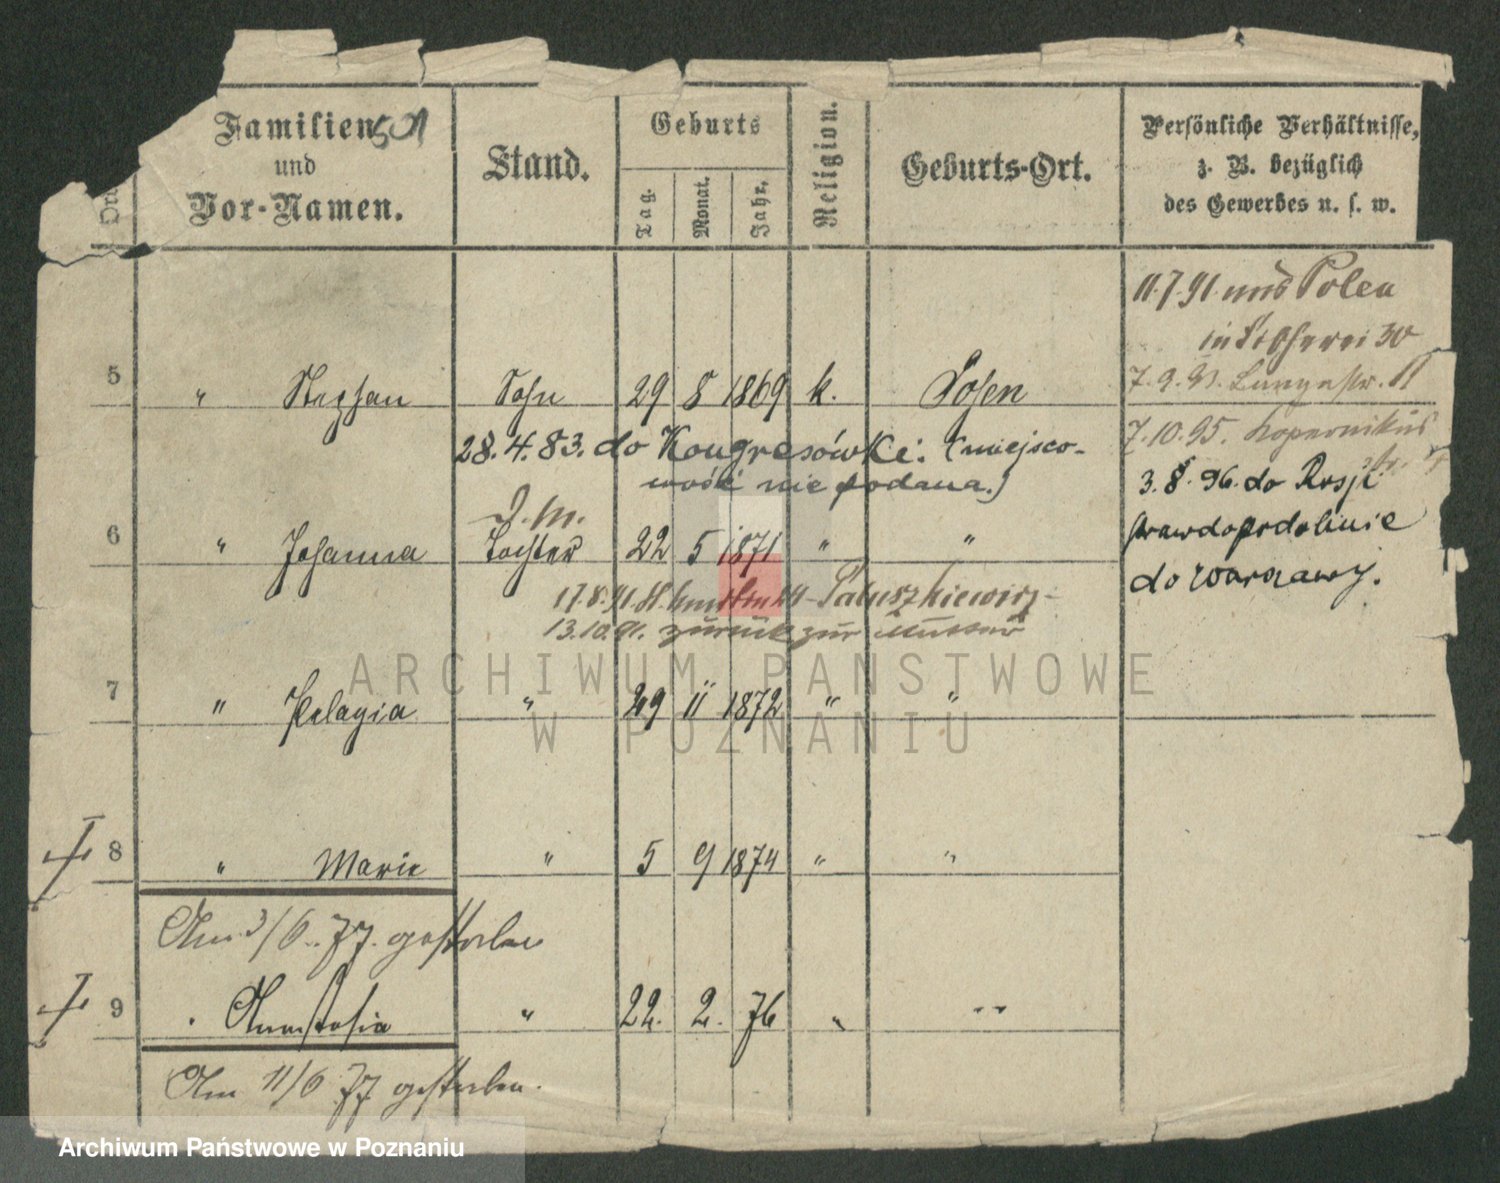 Familien 501
und
Vor-Namen.
Stand.
Geburts
Tag.
Monat.
Jahr.
Religion.
Geburts-Ort.
Persönliche Verhältnisse,
z. B. bezüglich
des Gewerbes u. s. w.
11.7.91 aus Polen
in 30
7.9.91. Langestr. 11
5 " Stephan Sohn 29 8 1869 k. Posen
7.10.95. Kopernikus
28.4.83. do Kongresówki. (miejsco-
wość nie podana.)
3.8.96. do Rosji
prawdopodobnie
do Warszawy.
D. M.
6 " Johanna Tochter 22 5 1871 " "
17.8.91. Paluszkiewicz
13.10.91. zurück zur Mutter
7 " Pelagia " 29 11 1872 " "
8 " Marie " 5 9 1874 " "
Am 3/6. 77. gestorben
9 " Anastasia " 22. 2. 76 " "
Am 11/6 77 gestorben.
ARCHIWUM PAŃSTWOWE
W POZNANIU
Archiwum Państwowe w Poznaniu